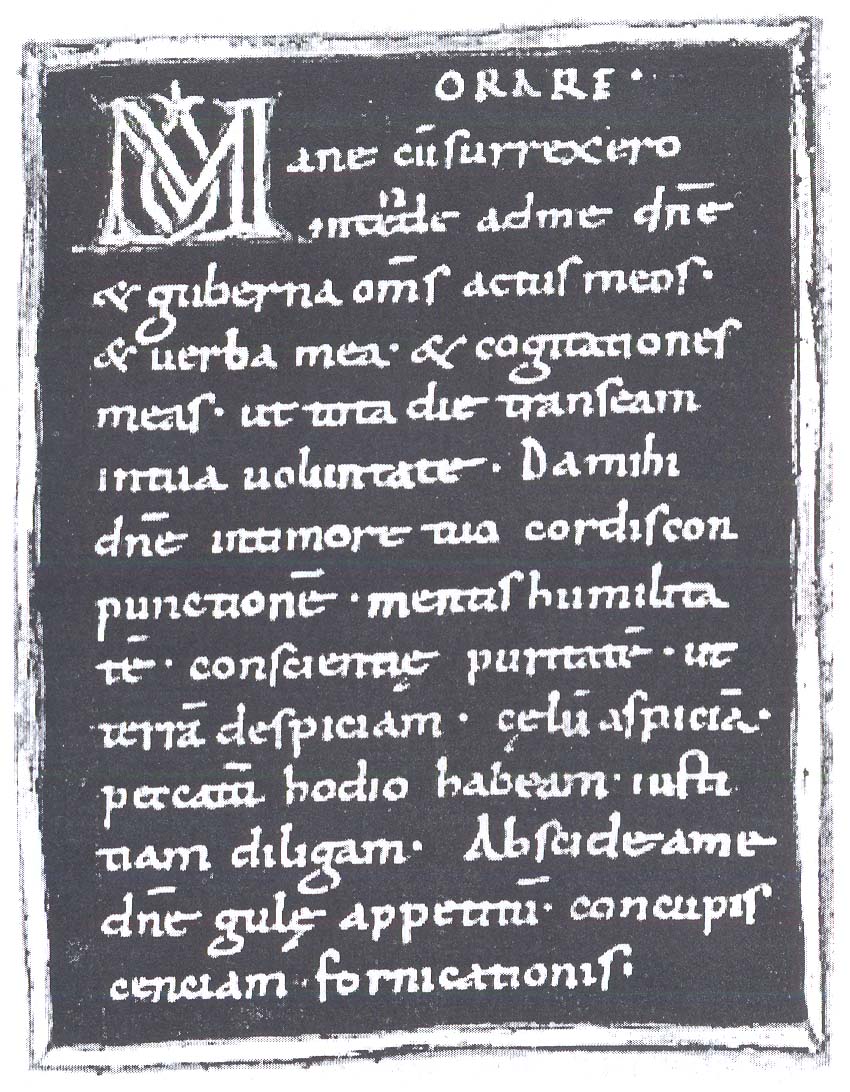 ORARE·
Mane cū surrexero
intende ad me dn̄e
& guberna om̄s actus meos·
& uerba mea· & cogitationes
meas· ut tota die transeam
in tua uoluntate·. Da mihi
dn̄e in timore tuo cordis con
punctionē· mentis humilita
tē· conscientię puritatē· ut
terrā despiciam· cęlū aspiciā·
peccatū hodio habeam· iusti
tiam diligam· Abscide a me
dn̄e gulę appetitū· concupis
cenciam fornicationis·